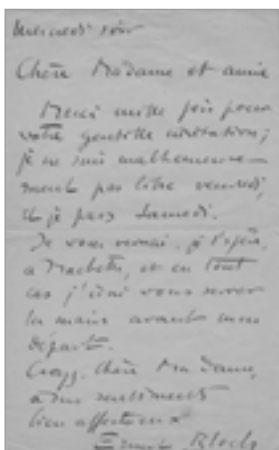 Mercredi soir
Chère Madame et amie
Merci mille fois pour
votre gentille invitation;
je ne suis malheureuse-
ment pas libre vendredi,
et je pars Samedi.
Je vous verrai, j'espère,
à Macbeth, et en tout
cas j'irai vous serrer
la main avant mon
départ.
Croyez, Chère Madame,
à mes sentiments
bien affectueux
Ernest Bloch